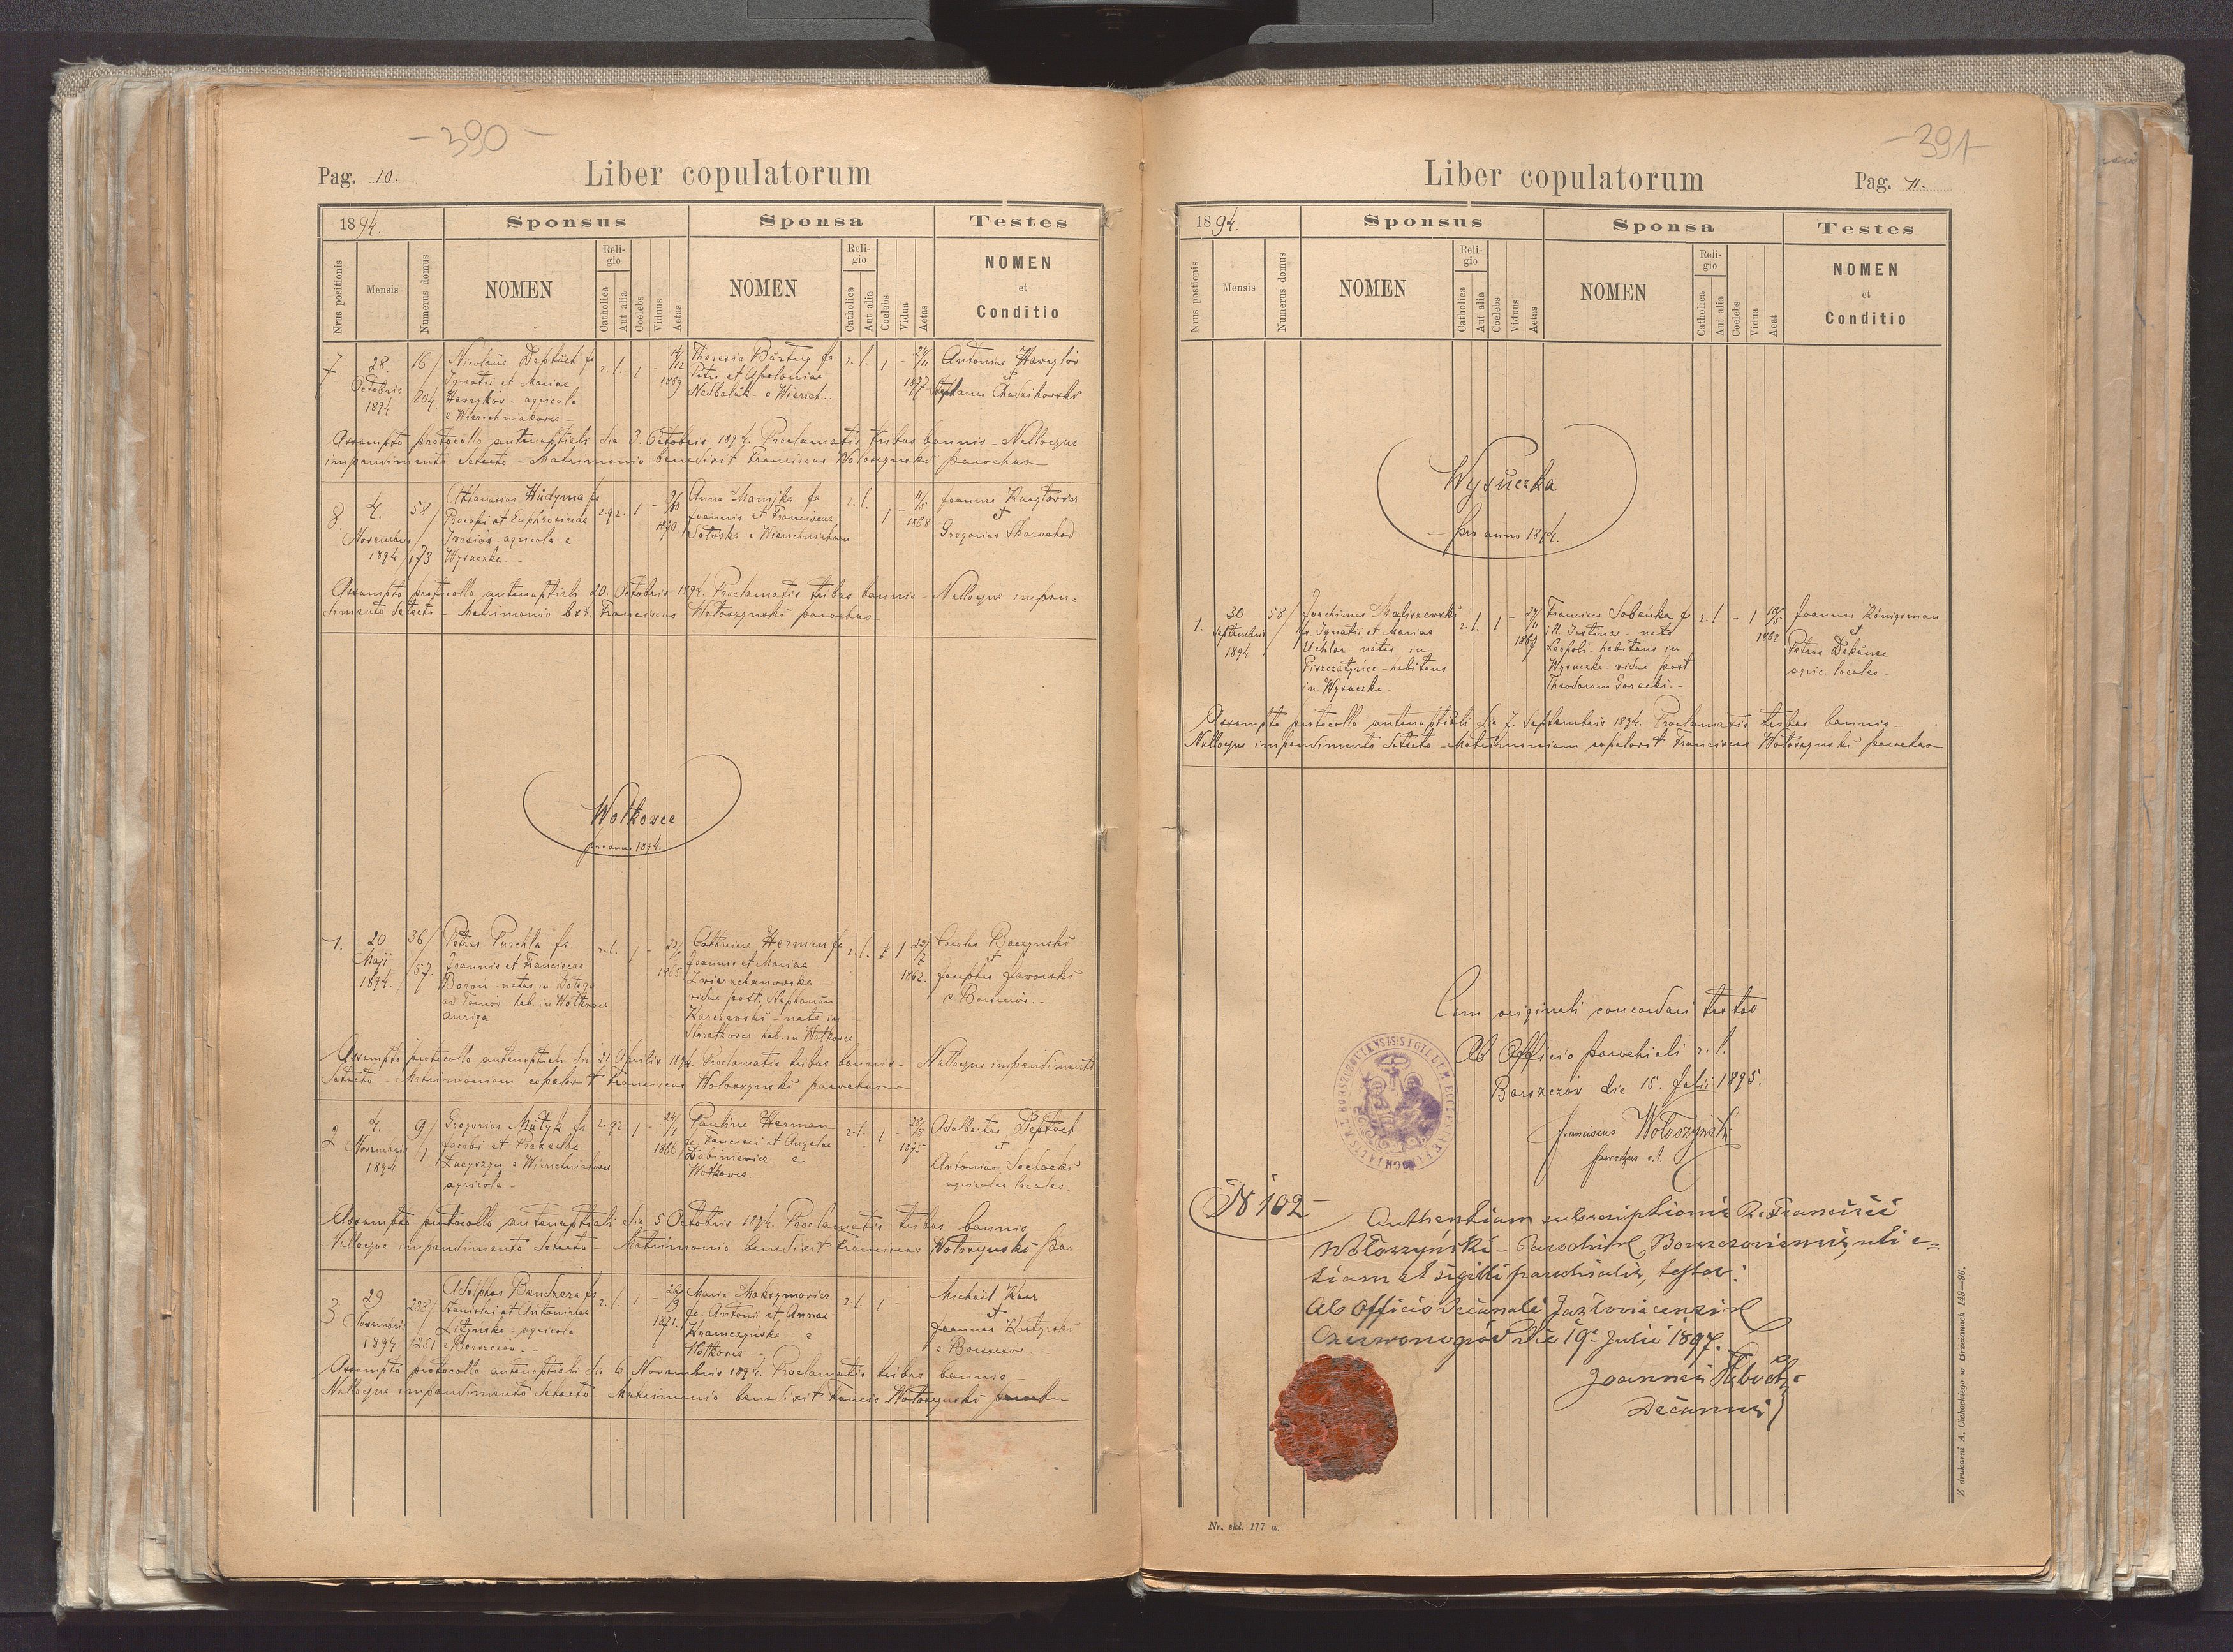 -390-
Pag. 10.
Liber copulatorum
1894.
Sponsus
Sponsa
Testes
Nrus positionis
Mensis
Numerus domus
NOMEN
Religio
Catholica
Aut alia
Coelebs
Viduus
Aetas
NOMEN
Religio
Catholica
Aut alia
Coelebs
Vidua
Aetas
NOMEN
et
Conditio
7.
28.
Octobris
1894
16/
/204
Nicolaus Deptuch fs
Ignatii et Mariae
Havrykov - agricola
e Wierzchniakowce -
r. l.
1
-
14/12
1869
Theresia Burtny fa
Petri et Apoloniae
Nedbalak - e Wierzch..
r. l.
1
-
24/11
1877
Antonius Havryłów
et
Stephanus Chudzikowski
Assumpto protocollo antenuptiali die 3. Octobris 1894. Proclamatis tribus bannis - Nulloque
impendimento detecto - Matrimonio benedixit Franciscus Wołoszynski parochus
8.
4.
Novembris
1894
58/
/173
Athanasius Hudyma fs
Procopi et Euphrosinae
agricola e
Wysuczka -
r. gr.
1
-
9/10
1870
Anna Manijka fa
Joannis et Franciscae
e Wierzchniakow
r. l.
1
-
11/5
1868
Joannes
et
Gregorius Skorochod
Assumpto protocollo antenuptiali 20. Octobris 1894. Proclamatis tribus bannis - Nulloque impen-
dimento detecto - Matrimonio bxt. Franciscus Wołoszynski parochus
Wołkowce
pro anno 1894.
1.
20
Maji
1894.
36/
/57.
Petrus Purchla fs.
Joannis et Franciscae
Boroń - natus in
ad Tarnów hab. in Wołkowce
auriga
r. l.
1
-
22/
1865
Catharina Herman fa
Joannis et Mariae
Zwierzchanowska -
vidua post. Stephanum
Karczewski - nata in
hab. in Wołkowce
r. l.
1
22/7
1862.
Carolus Baczynski
et
Josephus Jaworski
e Borszczów. -
Assumpto protocollo antenuptiali die 21 Aprilis 1894. Proclamatis tribus bannis - Nulloque impendimento
detecto - Matrimonium copulavit Franciscus Wołoszynski parochus
2
4.
Novembris
1894
9/
/1
Gregorius Matyk fs
Jacobi et Parascha
e Wierzchniakowce
agricola -
r. gr
1
-
24/1
1866
Paulina Herman
fa Francisci et Angelae
Dubiniewicz. e
Wołkowce. -
r. l.
1
-
29/8
1875
Adalbertus Deptuch
et
Antonius Sochocki
agricolae locales.
Assumpto protocollo antenuptiali die 5 Octobris 1894. Proclamatis tribus bannis
Nulloque impendimento detecto - Matrimonio benedixit Franciscus Wołoszynski - par.
3
29
Novembris
1894
238/
/251
Adolphus Bendzera fs
Stanislai et Antoninae
Lityńska - agricola
e Borszczów. -
r. l.
1
-
26/9
1871.
Maria Maksymowicz
fa. Antonii et Annae
Kramczynska e
Wołkowce -
r. l.
1
-
Michael Kusz
et
Joannes Kostyrski
e Borszczów.
Assumpto protocollo antenuptiali die 6 Novembris 1894. Proclamatis tribus bannis -
Nulloque impendimento detecto - Matrimonio benedixit Francis. Wołoszynski parochu
-391-
Liber copulatorum
Pag. 11.
1894
Sponsus
Sponsa
Testes
Nrus postionis
Mensis
Numerus domus
NOMEN
Religio
Catholica
Aut alia
Coelebs
Viduus
Aetas
NOMEN
Religio
Catholica
Aut alia
Coelebs
Vidua
Aeat
NOMEN
et
Conditio
Wysuczka
- pro anno 1894.
1.
30
Septembris
1894
58/
Joachimus Maliszewski
fs. Ignatii et Mariae
Uchlar - natus in
Piszczatyńce - habitans
in Wysuczka -
r. l.
1
-
24/11
1867
Francisca Sobeńka fa
ill. Justinae - nata
Leopoli - habitans in
Wysuczka - vidua post
Theodorum Gorecki. -
r. l
-
1
19/5
1862
Joannes Königsman
et
Petrus Dekunec
agric. locales -
Assumpto protocollo antenuptiali die 7. Septembris 1894. Proclamatis tribus bannis -
Nulloque impendimento detecto - Matrimonium copulavit Franciscus Wołoszynski parochus
Cum originali concordari testor
Ab Officio parochiali r. l.
Borszczów die 15. Julii 1895.
Franciscus Wołoszyński
parochus r. l.
N 102
Authentiam subscriptionis R. Francisci
Wołoszyński - Parochi r l Borszczoviensis, uti e-
tiam et sigilli parochialis, testor.
Ab Officio Decanali Jazłoviecensi r l
Czerwonogród die 19a Julii 1897.
Joannes
Decanus
Nr. skł. 177 a.
Z drukarni A. Cichockiego w Brzeżanach 149-96.